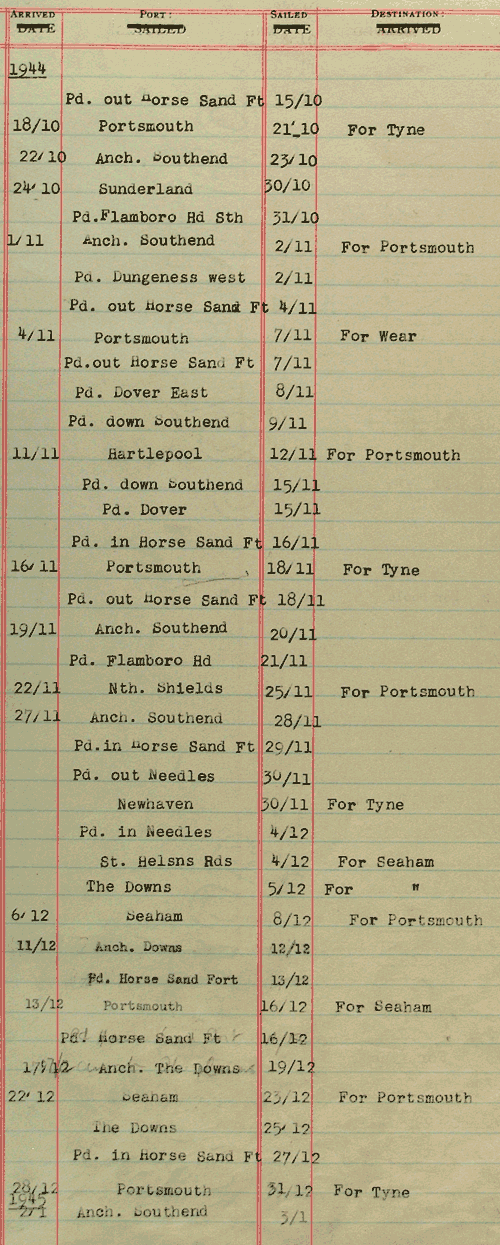 ARRIVED PORT: SAILED DESTINATION:
DATE SAILED DATE ARRIVED
1944
Pd. out Horse Sand Ft 15/10
18/10 Portsmouth 21/10 For Tyne
22/10 Anch. Southend 23/10
24/10 Sunderland 30/10
Pd.Flamboro Hd Sth 31/10
1/11 Anch. Southend 2/11 For Portsmouth
Pd. Dungeness west 2/11
Pd. out Horse Sand Ft 4/11
4/11 Portsmouth 7/11 For Wear
Pd.out Horse Sand Ft 7/11
Pd. Dover East 8/11
Pd. down Southend 9/11
11/11 Hartlepool 12/11 For Portsmouth
Pd. down Southend 15/11
Pd. Dover 15/11
Pd. in Horse Sand Ft 16/11
16/11 Portsmouth 18/11 For Tyne
Pd. out Horse Sand Ft 18/11
19/11 Anch. Southend 20/11
Pd. Flamboro Hd 21/11
22/11 Nth. Shields 25/11 For Portsmouth
27/11 Anch. Southend 28/11
Pd.in Horse Sand Ft 29/11
Pd. out Needles 30/11
Newhaven 30/11 For Tyne
Pd. in Needles 4/12
St. Helsns Rds 4/12 For Seaham
The Downs 5/12 For "
6/12 Seaham 8/12 For Portsmouth
11/12 Anch. Downs 12/12
Pd. Horse Sand Fort 13/12
13/12 Portsmouth 16/12 For Seaham
Pd. Horse Sand Ft 16/12
Anch. The Downs 19/12
22/12 Seaham 23/12 For Portsmouth
The Downs 25/12
Pd. in Horse Sand Ft 27/12
28/12 Portsmouth 31/12 For Tyne
1945
2/1 Anch. Southend 3/1